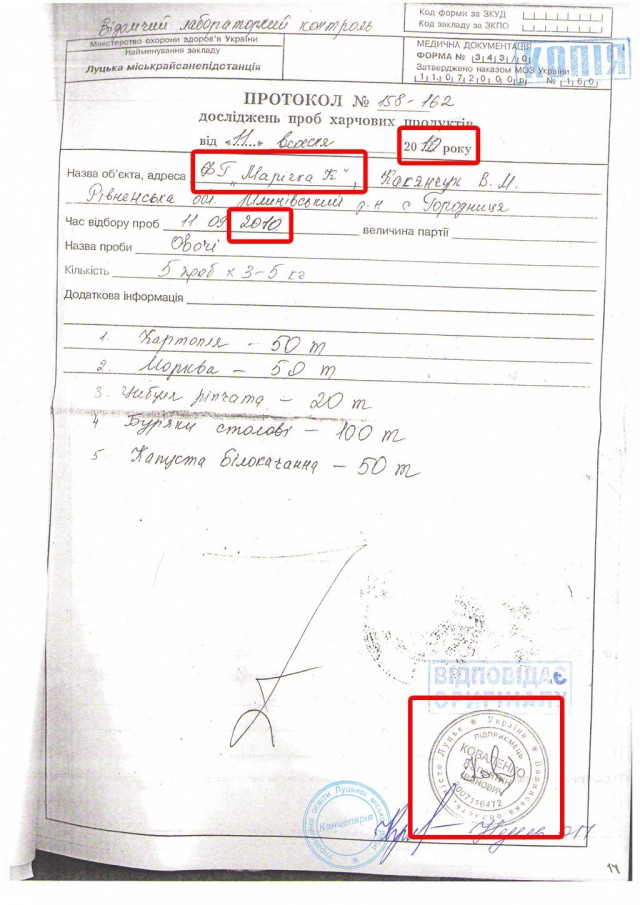 Відомчий лабораторний контроль
Код форми за ЗКУД
Код закладу за ЗКПО
Міністерство охорони здоров'я України
Найменування закладу
Луцька міськрайсанепідстанція
МЕДИЧНА ДОКУМЕНТАЦІЯ
ФОРМА № 343/0
Затверджено наказом МОЗ України
11.07.2000р № 160
КОПІЯ
ПРОТОКОЛ № 158-162
досліджень проб харчових продуктів
від «11» вересня 2010 року
Назва об'єкта, адреса ФГ "Марічка К", В. М.
Рівненська обл. Млинівський р-н с Городниця
Час відбору проб 11.09 2010 величина партії
Назва проби Овочі
Кількість 5 проб х 3-5 кг
Додаткова інформація
1. Картопля - 50 т
2. Морква - 50 т
3. Цибуля ріпчата - 20 т
4 Буряки столові - 100 т
5. Капуста білокачанна - 50 т
ВІДПОВІДАЄ
ОРИГІНАЛУ
Україна ✻ Волинська область, місто Луцьк
ПІДПРИЄМЕЦЬ
КОВАЛЕНКО
ІВАНОВИЧ
2007116472
Управління освіти Луцької міської
Канцелярія
14